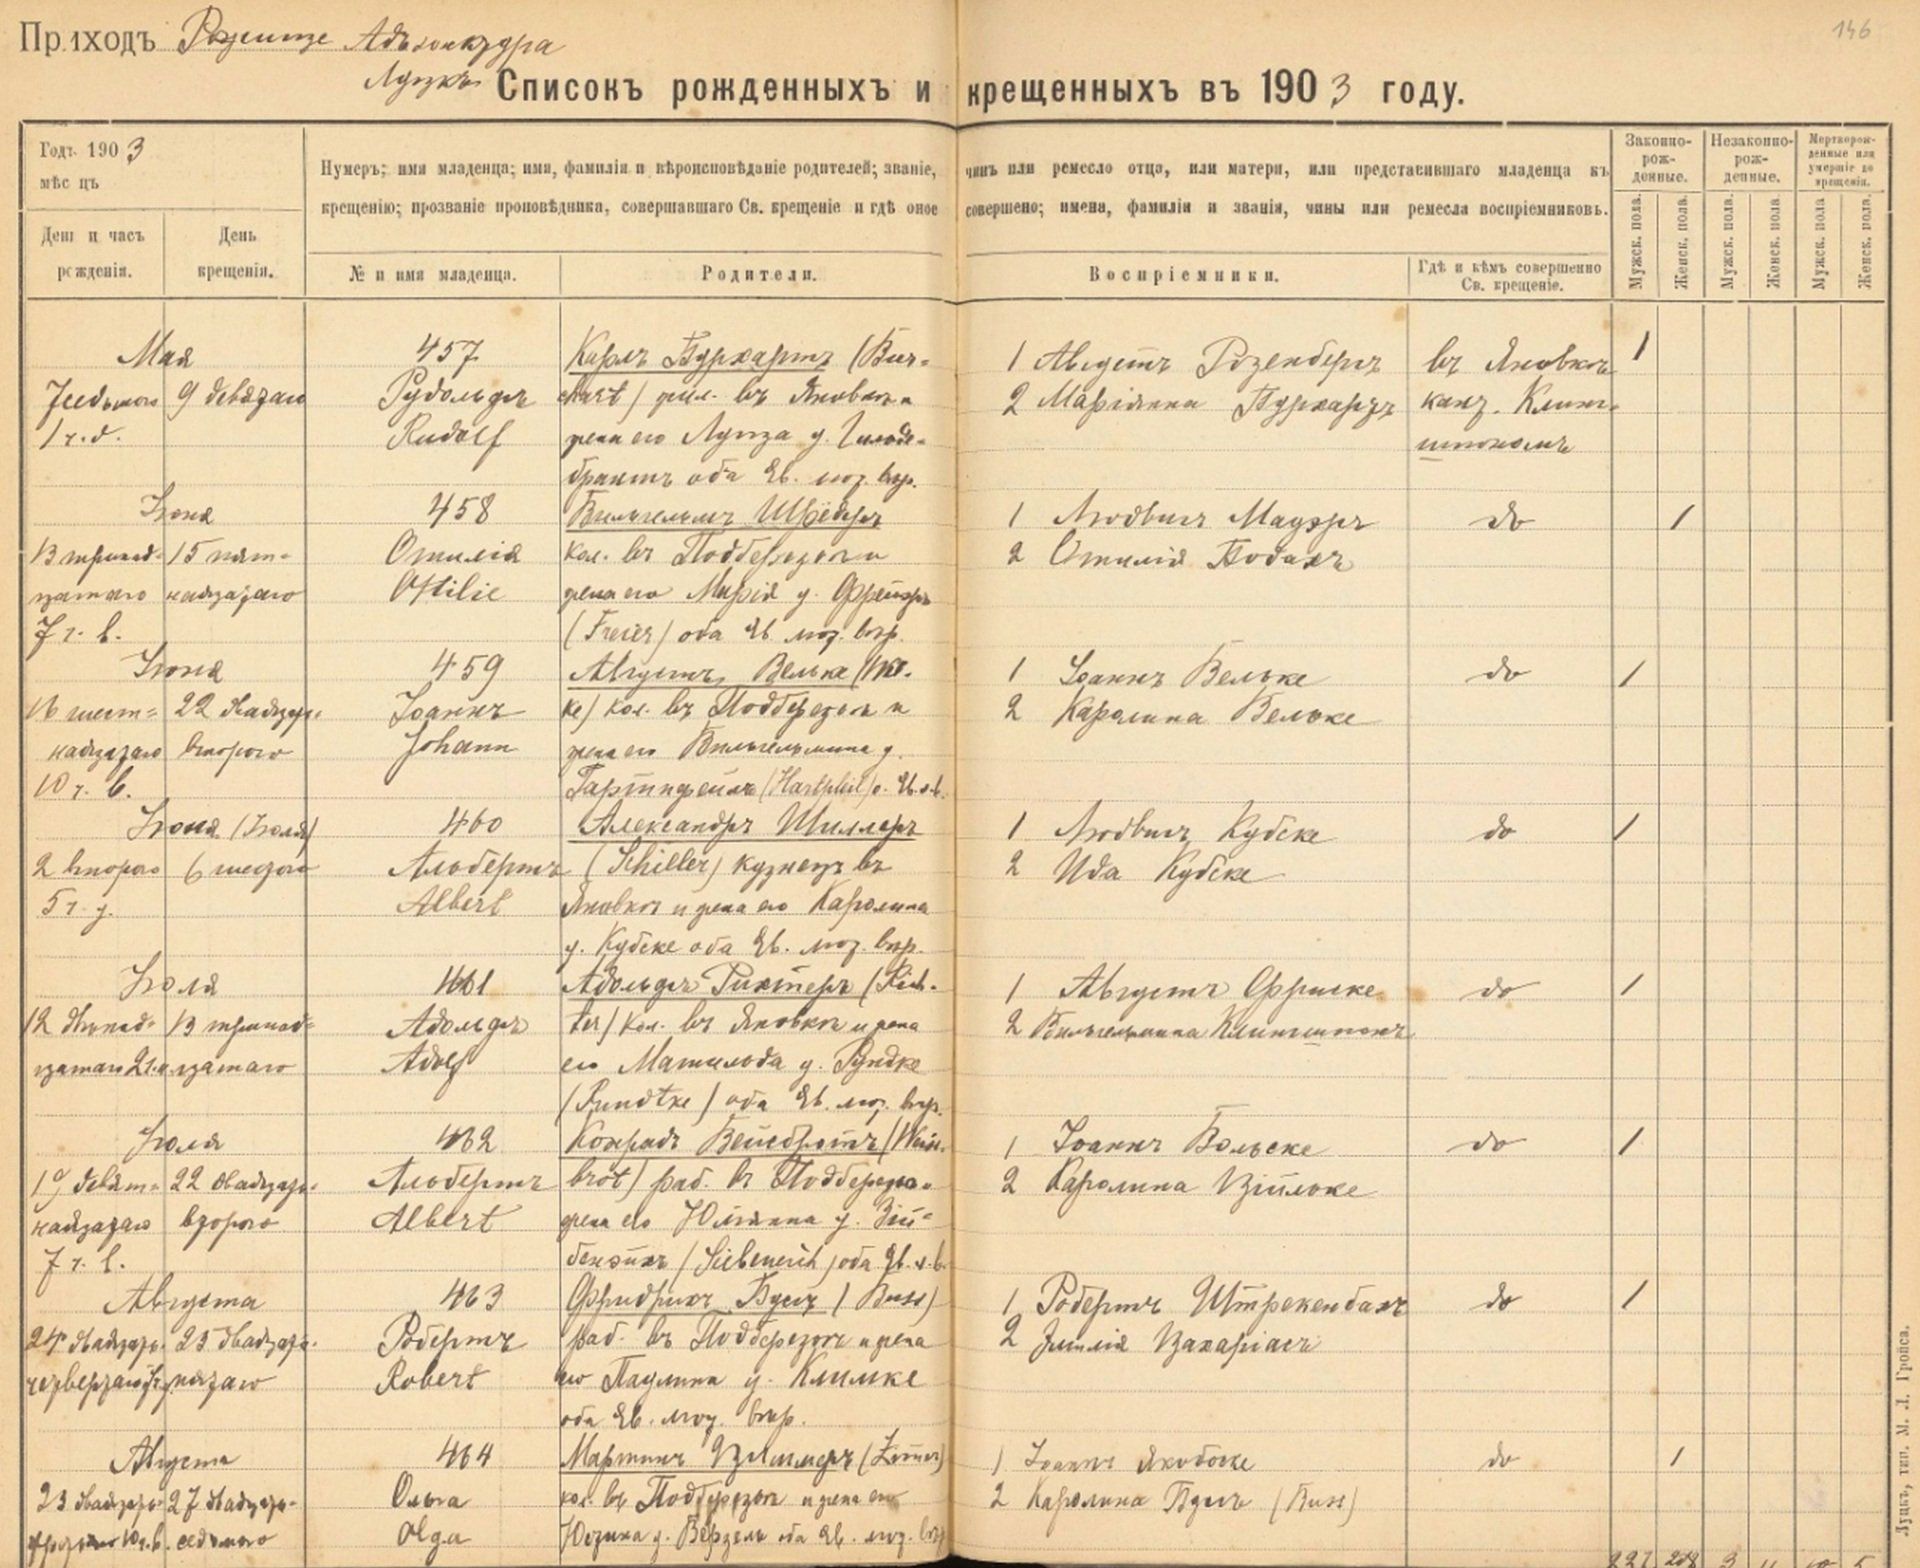 Приходъ Рожище Адъюнктура
Луцкъ
146
Списокъ рожденныхъ и крещенныхъ въ 1903 году.
Годъ 1903
мѣс цъ
День и часъ рожденія.
День крещенія.
Нумеръ; имя младенца; имя, фамилія и вѣроисповѣданіе родителей; званіе, чинъ или ремесло отца, или матери, или представившаго младенца къ
крещенію; прозваніе проповѣдника, совершавшаго Св. крещеніе и гдѣ оное совершено; имена, фамиліи и званія, чины или ремесла воспріемниковъ.
№ и имя младенца.
Родители.
Воспріемники.
Гдѣ и кѣмъ совершенно
Св. крещеніе.
Законно-
рож-
денные.
Незаконно-
рож-
денные.
Мертворож-
денные или
умершіе до
крещенія.
Мужск. пола.
Женск. пола.
Мужск. пола.
Женск. пола.
Мужск. пола
Женск. пола.
Мая
7 седьмого
1 ч. д.
9 девятаго
457
Рудольфъ
Rudolf
Карлъ Бурхартъ (Bur-
khart) кол. въ Яновкѣ и
жена его Луиза у. Гильде-
брантъ оба Ев. лют. вѣр.
1 Августъ Розенбергъ
2 Маріянна Бурхартъ
въ Яновкѣ
кант. Клинг-
штономъ
1
Іюня
13 тринад-
цатаго
7 ч. в.
15 пят-
надцатаго
458
Отилія
Ottilie
Вильгельмъ Шрёдеръ
кол. въ Подберезѣ и
жена его Марія у. Фрейеръ
(Freier) оба Ев. лют. вѣр.
1 Людвигъ Мауэръ
2 Отилія Бодахъ
до
1
Іюня
16 шест-
надцатаго
10 ч. в.
22 двадцать
второго
459
Іоаннъ
Johann
Августъ Вельке (Wel-
ke) кол. въ Подберезѣ и
жена его Вильгельмина у.
Гартпфейль (Hartpfeil) о. Ев. л. в.
1 Іоаннъ Вельке
2 Каролина Вельке
до
1
Іюня (Іюля)
2 второго
5 ч. у.
6 шестого
460
Альбертъ
Albert
Александръ Шиллеръ
(Schiller) кузнецъ въ
Яновкѣ и жена его Каролина
у. Кубске оба Ев. лют. вѣр.
1 Людвигъ Кубске
2 Ида Кубске
до
1
Іюля
12 двѣнад-
цатаго 2 ч. н.
13 тринад-
цатаго
461
Адольфъ
Adolf
Адольфъ Рихтеръ (Rich-
ter) кол. въ Яновкѣ и жена
его Матильда у. Рундке
(Rundtke) оба Ев. лют. вѣр.
1 Августъ Фриске
2 Вильгельмина Клингштонъ
до
1
Іюля
19 девят-
надцатаго
7 ч. в.
22 двадцать
второго
462
Альбертъ
Albert
Конрадъ Вейсбротъ (Weiss-
brot) раб. въ Подберезѣ
жена его Юліанна у. Зи-
бенэйхъ (Siebeneich) оба Ев. л. в.
1 Іоаннъ Вольске
2 Каролина Ціильке
до
1
Августа
24 двадцать
четвертаго
25 двадцать
пятаго
463
Робертъ
Robert
Фридрихъ Бусъ (Buss)
раб. въ Подберезѣ и жена
его Паулина у. Климке
оба Ев. лют. вѣр.
1 Робертъ Штрекенбахъ
2 Эмилія Цахаріасъ
до
1
Августа
23 двадцать
третьяго 10 ч. в.
27 двадцать
седьмого
464
Ольга
Olga
Мартинъ Циммеръ (Zimmer)
кол. въ Подберезѣ и жена его
Юстина у. Верзель оба Ев. лют. вѣр.
1 Іоаннъ Якобске
2 Каролина Бусъ (Buss)
до
1
227 208 3
Луцкъ, тип. М. Л. Гройса.